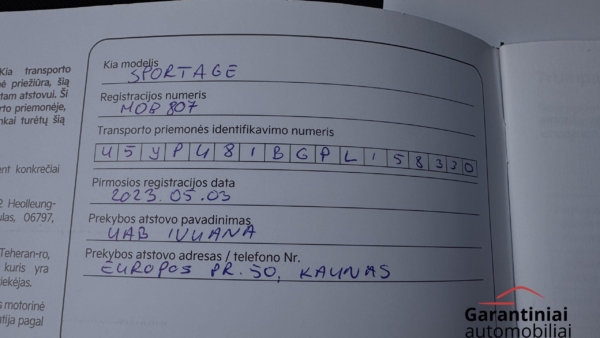 Kia transporto
ė priežiūra, šią
tam atstovui. Ši
rto priemonėje,
nkai turėtų šią
ent konkrečiai
2 Heolleung-
ulas, 06797,
Teheran-ro,
kuris yra
iekėjas.
s motorinė
tija pagal
Kia modelis
SPORTAGE
Registracijos numeris
MOB 807
Transporto priemonės identifikavimo numeris
U5YPU81BGPL158320
Pirmosios registracijos data
2023.05.03
Prekybos atstovo pavadinimas
UAB IVUANA
Prekybos atstovo adresas / telefono Nr.
EUROPOS PR. 50, KAUNAS
Garantiniai
automobiliai